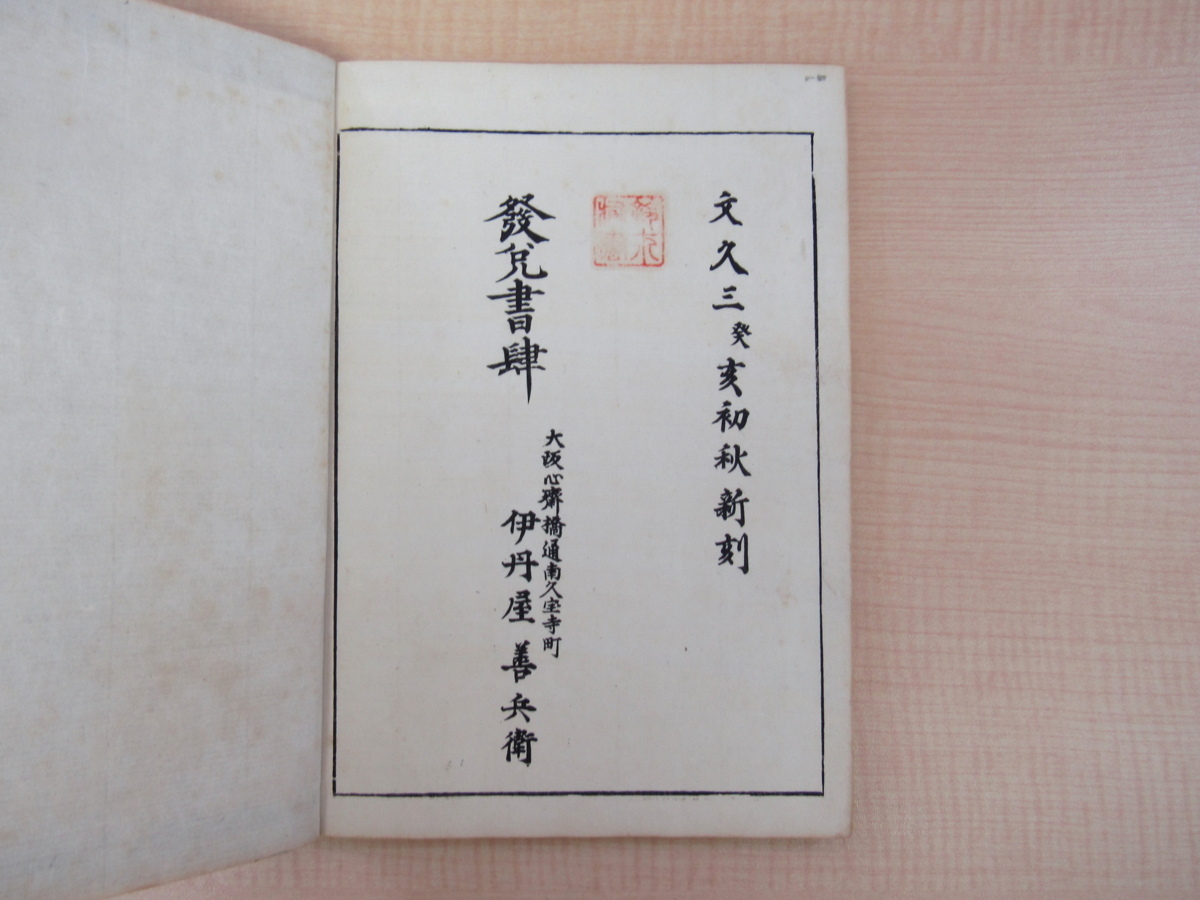 文久三癸亥初秋新刻
發兌書肆
大阪心齋橋通南久宝寺町
伊丹屋善兵衛